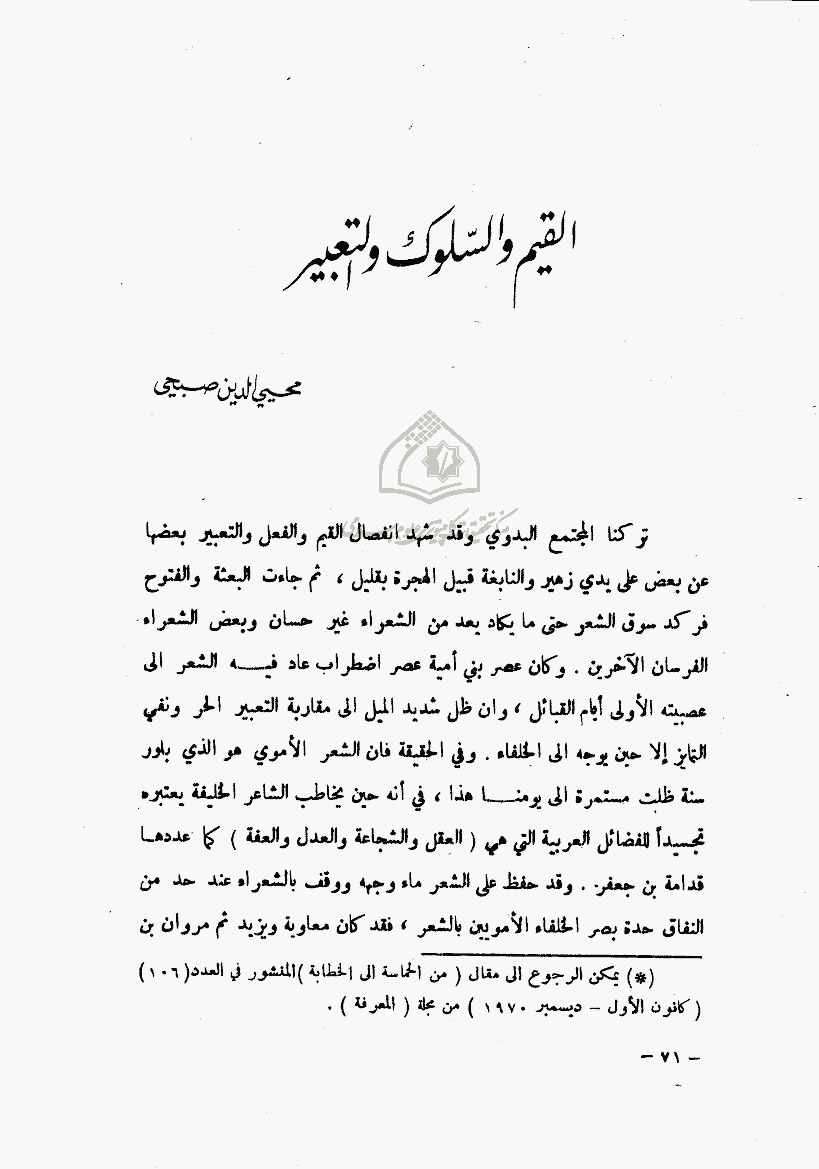 القيم والسّلوك والتعبير
محيي الدين صبحي
تركنا المجتمع البدوي وقد شهد انفصال القيم والفعل والتعبير بعضها
عن بعض على يدي زهير والنابغة قبيل الهجرة بقليل ، ثم جاءت البعثة والفتوح
فركد سوق الشعر حتى ما يكاد يعد من الشعراء غير حسان وبعض الشعراء
الفرسان الآخرين . وكان عصر بني أمية عصر اضطراب عاد فيــه الشعر الى
عصبيته الأولى أيام القبائل ، وان ظل شديد الميل الى مقاربة التعبير الحر ونفي
التمايز إلا حين يوجه الى الخلفاء . وفي الحقيقة فان الشعر الأموي هو الذي بلور
سنة ظلت مستمرة الى يومنــا هذا ، في أنه حين يخاطب الشاعر الخليفة يعتبره
تجسيداً للفضائل العربية التي هي ( العقل والشجاعة والعدل والعفة ) كما عددهـا
قدامة بن جعفر . وقد حفظ على الشعر ماء وجهه ووقف بالشعراء عند حد من
النفاق حدة بصر الخلفاء الأمويين بالشعر ، فقد كان معاوية ويزيد ثم مروان بن
(*) يمكن الرجوع الى مقال ( من الحماسة الى الخطابة ) المنشور في العدد (١٠٦)
( كانون الأول – ديسمبر ١٩٧٠ ) من مجلة ( المعرفة ) .
– ٧١ –